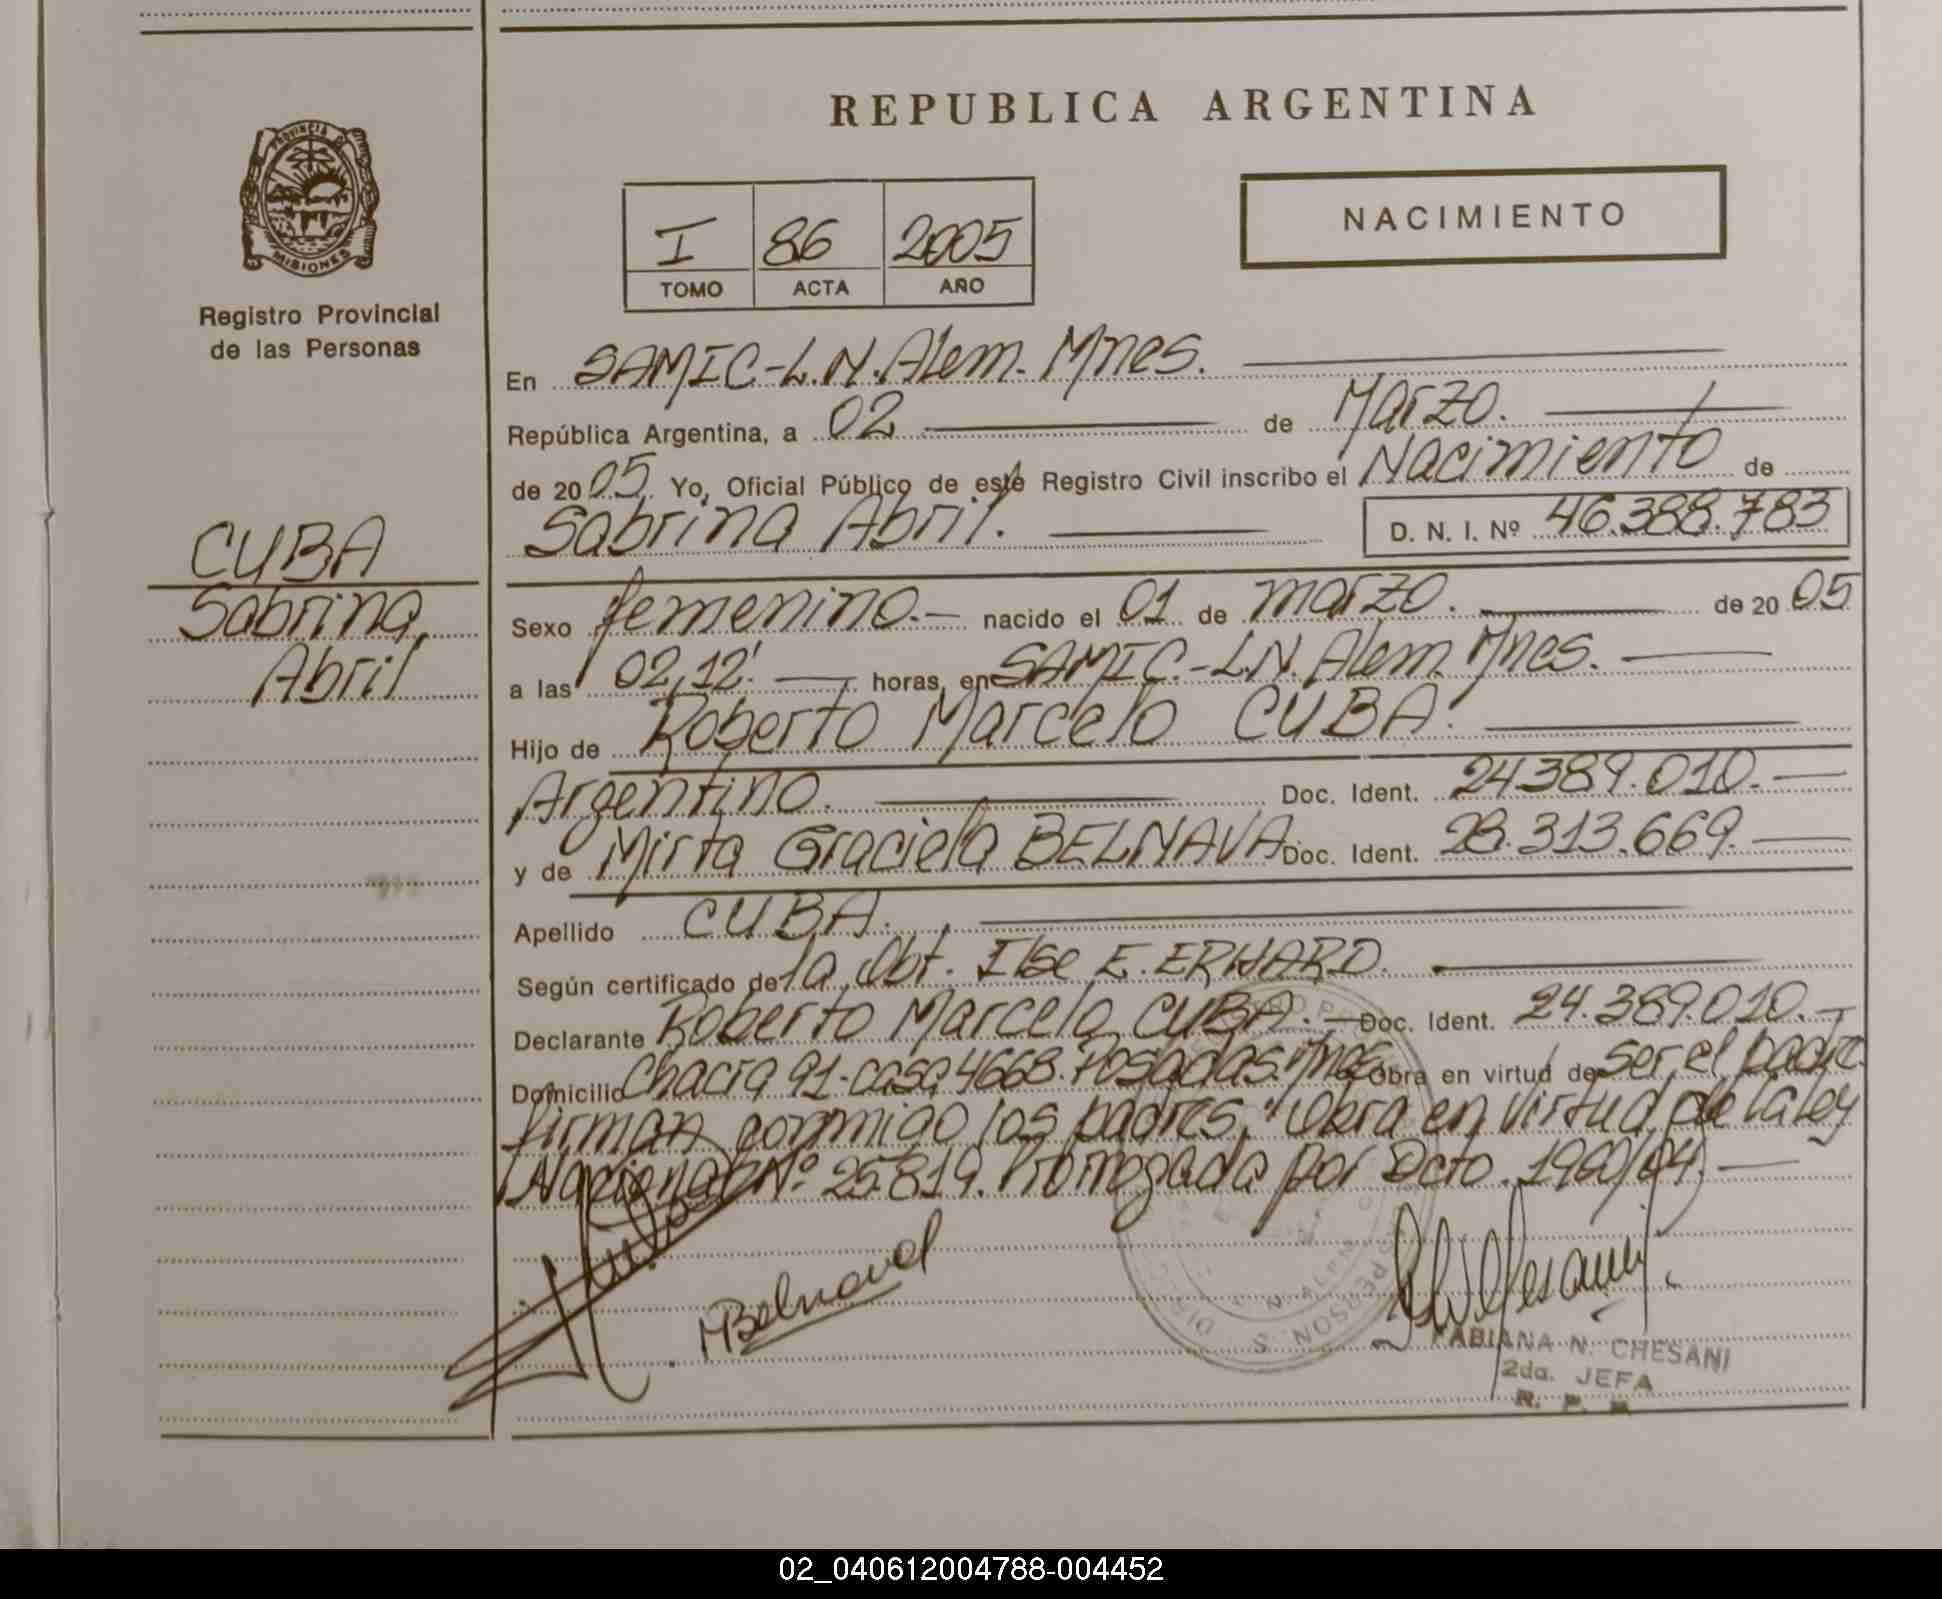 REPUBLICA ARGENTINA
PROVINCIA DE
MISIONES
Registro Provincial
de las Personas
I 86 2005
TOMO ACTA AÑO
NACIMIENTO
En SAMIC-L.N.Alem. Mnes.
República Argentina, a 02 de Marzo.
de 2005. Yo, Oficial Público de este Registro Civil inscribo el Nacimiento de
Sabrina Abril. D. N. I. Nº 46.388.783
CUBA
Sabrina
Abril
Sexo femenino.- nacido el 01 de marzo. de 2005
a las 02,12'. horas, en SAMIC.-L.N. Alem. Mnes.
Hijo de Roberto Marcelo CUBA.
Argentino. Doc. Ident. 24389.010.
y de Mirta Graciela BELNAVA. Doc. Ident. 28.313.669.
Apellido CUBA.
Según certificado de la Obt. Ilse E. ERHARD.
Declarante Roberto Marcelo CUBA. Doc. Ident. 24.389.010.
Domicilio Chacra 91-casa 4668. Posadas. Mnes. Obra en virtud de ser el padre
firman conmigo los padres, "Obra en virtud de la ley
Nacional Nº 25.819. Prorrogada por Dcto. 1960/04)
MBelnava
FABIANA N. CHESANI
2da. JEFA
R. P. P.
02_040612004788-004452